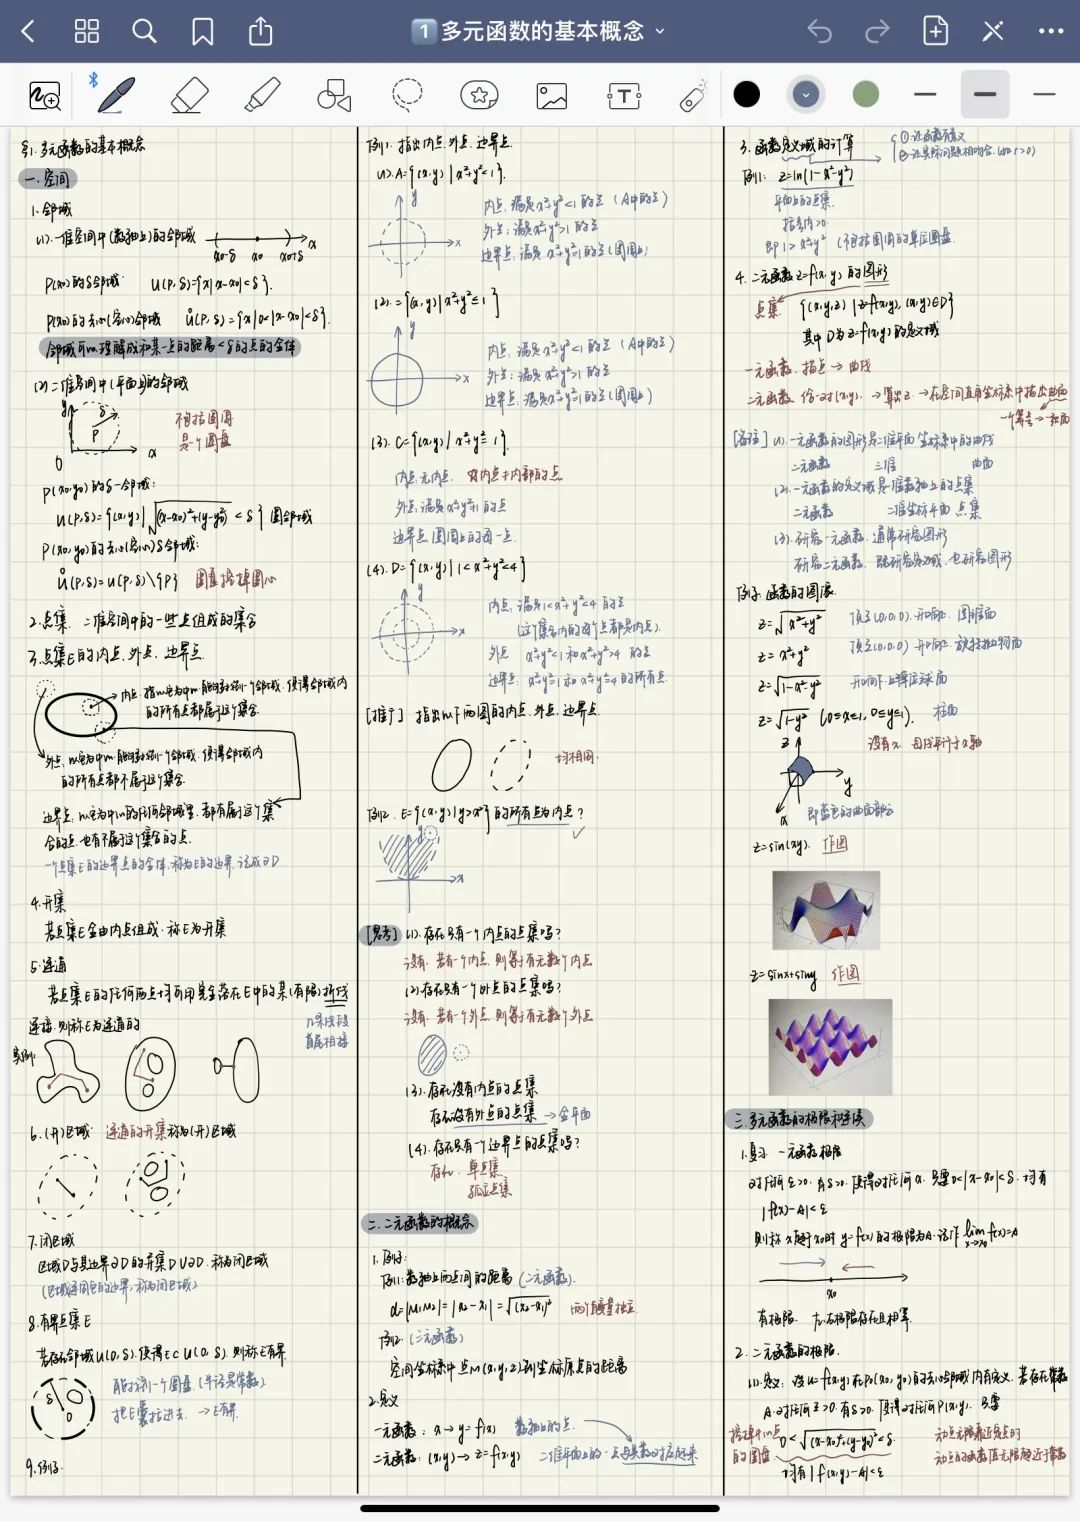 1 多元函数的基本概念
§1. 多元函数的基本概念
一.空间
1.邻域
(1).一维空间中(数轴上)的邻域
x0-δ x0 x0+δ x
P(x0)的δ邻域 U(P,δ)={x||x-x0|<δ}.
P(x0)的去心(空心)邻域 Ů(P,δ)={x|0<|x-x0|<δ}.
邻域可以理解成和某一点的距离<δ的点的全体
(2)二维空间中(平面上)的邻域
y δ P 0 x
不包括圆周
是一个圆盘
P(x0,y0)的δ-邻域:
U(P,δ)={(x,y)|√(x-x0)²+(y-y0)² <δ} 圆邻域
P(x0,y0)的去心(空心)δ邻域:
Ů(P,δ)=U(P,δ)\{P} 圆盘挖掉圆心
2.点集. 二维空间中的一些点组成的集合
3.点集E的内点.外点.边界点.
的所有点都属于这个集合.
的所有点都不属于这个集合.
合的点.也有不属于这个集合的点.
一个点集E的边界点的全体.称为E的边界.记成∂D
4.开集
若点集E全由内点组成.称E为开集
5.连通
若点集E的任何两点均可用完全落在E中的某(有限)折线
连接.则称E为连通的
n条线段
首尾相接
实例:
6.(开)区域: 连通的开集称为(开)区域
7.闭区域
区域D与其边界∂D的并集D∪∂D.称为闭区域
(区域连同它的边界,称为闭区域)
8.有界点集E
若存在邻域U(0,δ).使得E⊂U(0,δ).则称E有界.
能找到一个圆盘(半径是常数)
把E囊括进去. →E有界.
δ 0
9.例子.
例1.指出内点.外点.边界点.
(1).A={(x,y)|x²+y²<1}.
y x
内点.满足x²+y²<1的点(A中的点)
外点:满足x²+y²>1的点
边界点.满足x²+y²=1的点(圆周上)
(2).={(x,y)|x²+y²≤1}
y x
内点.满足x²+y²<1的点(A中的点)
外点:满足x²+y²>1的点
边界点.满足x²+y²=1的点(圆周上)
(3).C={(x,y)|x²+y²=1}.
内点.无内点. 内点≠内部的点
外点.满足x²+y²≠1的点
边界点.圆周上的每一点.
(4).D={(x,y)|1<x²+y²<4}
y x
内点.满足1<x²+y²<4的点
(这个集合内的每个点都是内点).
外点 x²+y²<1和x²+y²>4的点
边界点 x²+y²=1和x²+y²=4的所有点
[推广] 指出以下两图的内点.外点.边界点.
均相同.
例2. E={(x,y)|y>x²}的所有点为内点?
✓
y x
[思考] (1).存在只有一个内点的点集吗?
没有.若有一个内点.则等于有无数个内点
(2)存在只有一个外点的点集吗?
没有.若有一个外点.则等于有无数个外点
(3).存在没有内点的点集
存在没有外点的点集 →全平面
(4).存在只有一个边界点的点集吗?
存在. 单点集
孤立点集
二.二元函数的概念
1.例子:
例1:数轴上两点间的距离(二元函数).
d=|M1M2|=|x2-x1|=√(x2-x1)² 两个变量独立.
例2.(三元函数)
空间坐标系中点M(x,y,z)到坐标原点的距离
2.定义
一元函数: x→y=f(x) 数轴上的点.
二元函数:(x,y)→z=f(x,y)
3.函数定义域的计算
①让函数有意义
②让实际问题相吻合.(如r>0)
例1: z=ln(1-x²-y²)
平面上的点集.
括号内>0.
即1>x²+y² (不包括圆周的单位圆盘.
4.二元函数z=f(x,y)的图形
点集 {(x,y,z)|z=f(x,y),(x,y)∈D}
其中D为z=f(x,y)的定义域
一元函数.描点→曲线
二元函数.给一对(x,y).→算出z→在空间直角坐标系中描出曲面
一个等号→一张面
[备注](1).一元函数的图形是二维平面坐标系中的曲线
二元函数 三维 曲面
(2).一元函数的定义域是一维数轴上的点集
二元函数 二维坐标平面 点集
(3).研究一元函数.通常研究图形
研究二元函数.既研究定义域.也研究图形
例子.函数的图像.
z=√x²+y² 顶点(0,0,0).开向上.圆锥面
z=x²+y² 顶点(0,0,0).开向上.旋转抛物面
z=√1-x²-y² 开向下.上半位球面
z=√1-y² (0≤x≤1,0≤y≤1). 柱面
没有x.母线平行于x轴
z y x
即蓝色的曲面部分
z=sin(xy). 作图
z=sinx+siny 作图
二.多元函数的极限和连续
1.复习.一元函数极限
对任何ε>0.有δ>0.使得对任何x.只要0<|x-x0|<δ.均有
|f(x)-A|<ε
则称x趋于x0时y=f(x)的极限为A.记作lim x→x0 f(x)=A
x0
有极限.左右极限存在且相等.
2.二元函数的极限.
(1).定义:设u=f(x,y)在P0(x0,y0)的去心邻域内有定义.若存在常数
A.对任何ε>0.有δ>0.使得对任何P(x,y).只要
挖掉中心点
的圆盘
0<√(x-x0)²+(y-y0)²<δ.
均有|f(x,y)-A|<ε
动点无限靠近定点时
动点的函数值无限趋近于常数